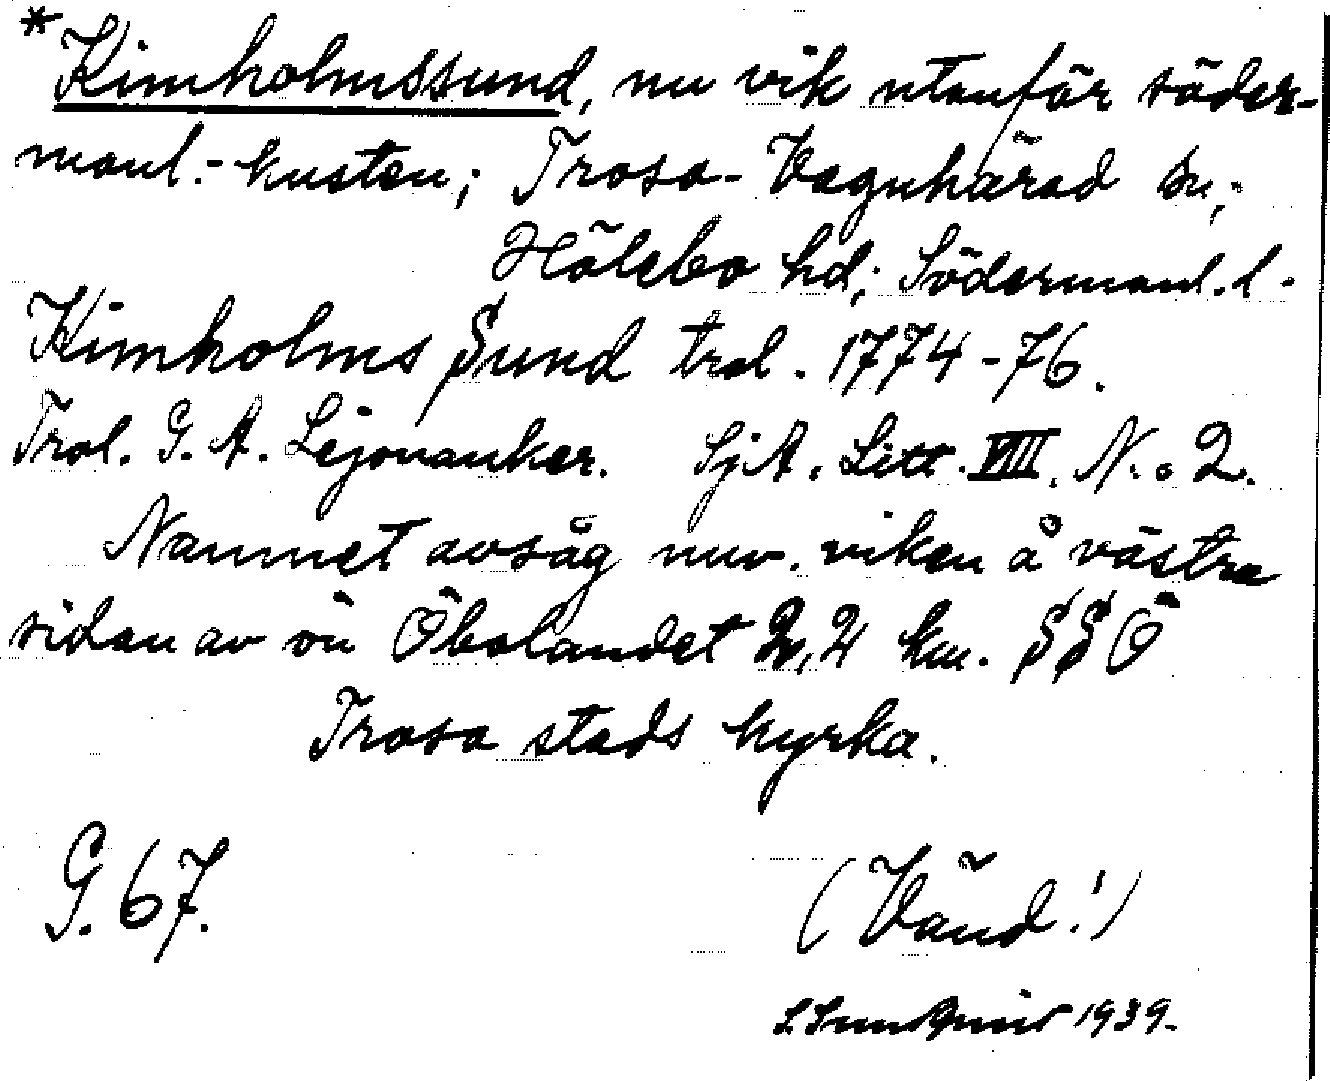 *Kimholmssund, nu vik utanför söder-
manl.-kusten; Trosa-Vagnhärad sn;
Hölebo hd; Södermanl. l.
Kimholms Sund trol. 1774-76.
Trol. G. A. Lejonanker. SjA. Litt. VIII. N.o 2.
Namnet avsåg nuv. viken å västra
sidan av ön Öbolandet 2,2 km. SSÖ
Trosa stads kyrka.
G. 67.
(Vänd!)
1939.